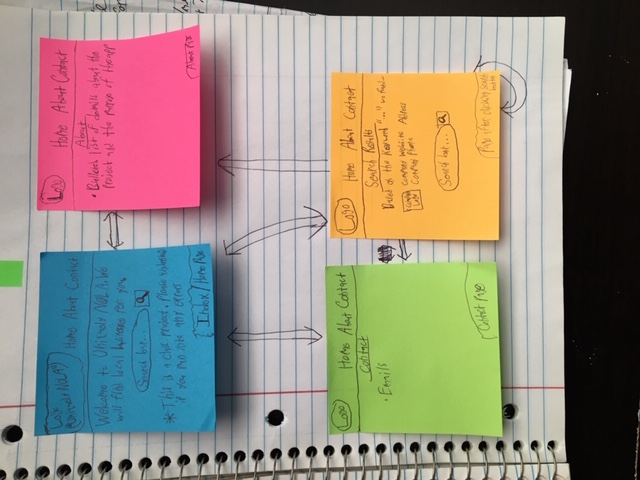 Logo
Home About Contact
Welcome to
NOLA. We
will find local businesses for you
Search bar...
* This is a class project. Please
if you run into any errors
Index/Home Page
Logo
Home About Contact
About
• Bulleted list of details about the
project and the purpose of the app
About Page
Logo
Home About Contact
Contact
• Emails
Contact Page
Logo
Home About Contact
Search Results
Based on the keyword "..." we found...
Company Website Address
Company Phone
Company
Logo
Search bar...
Page after clicking search
button